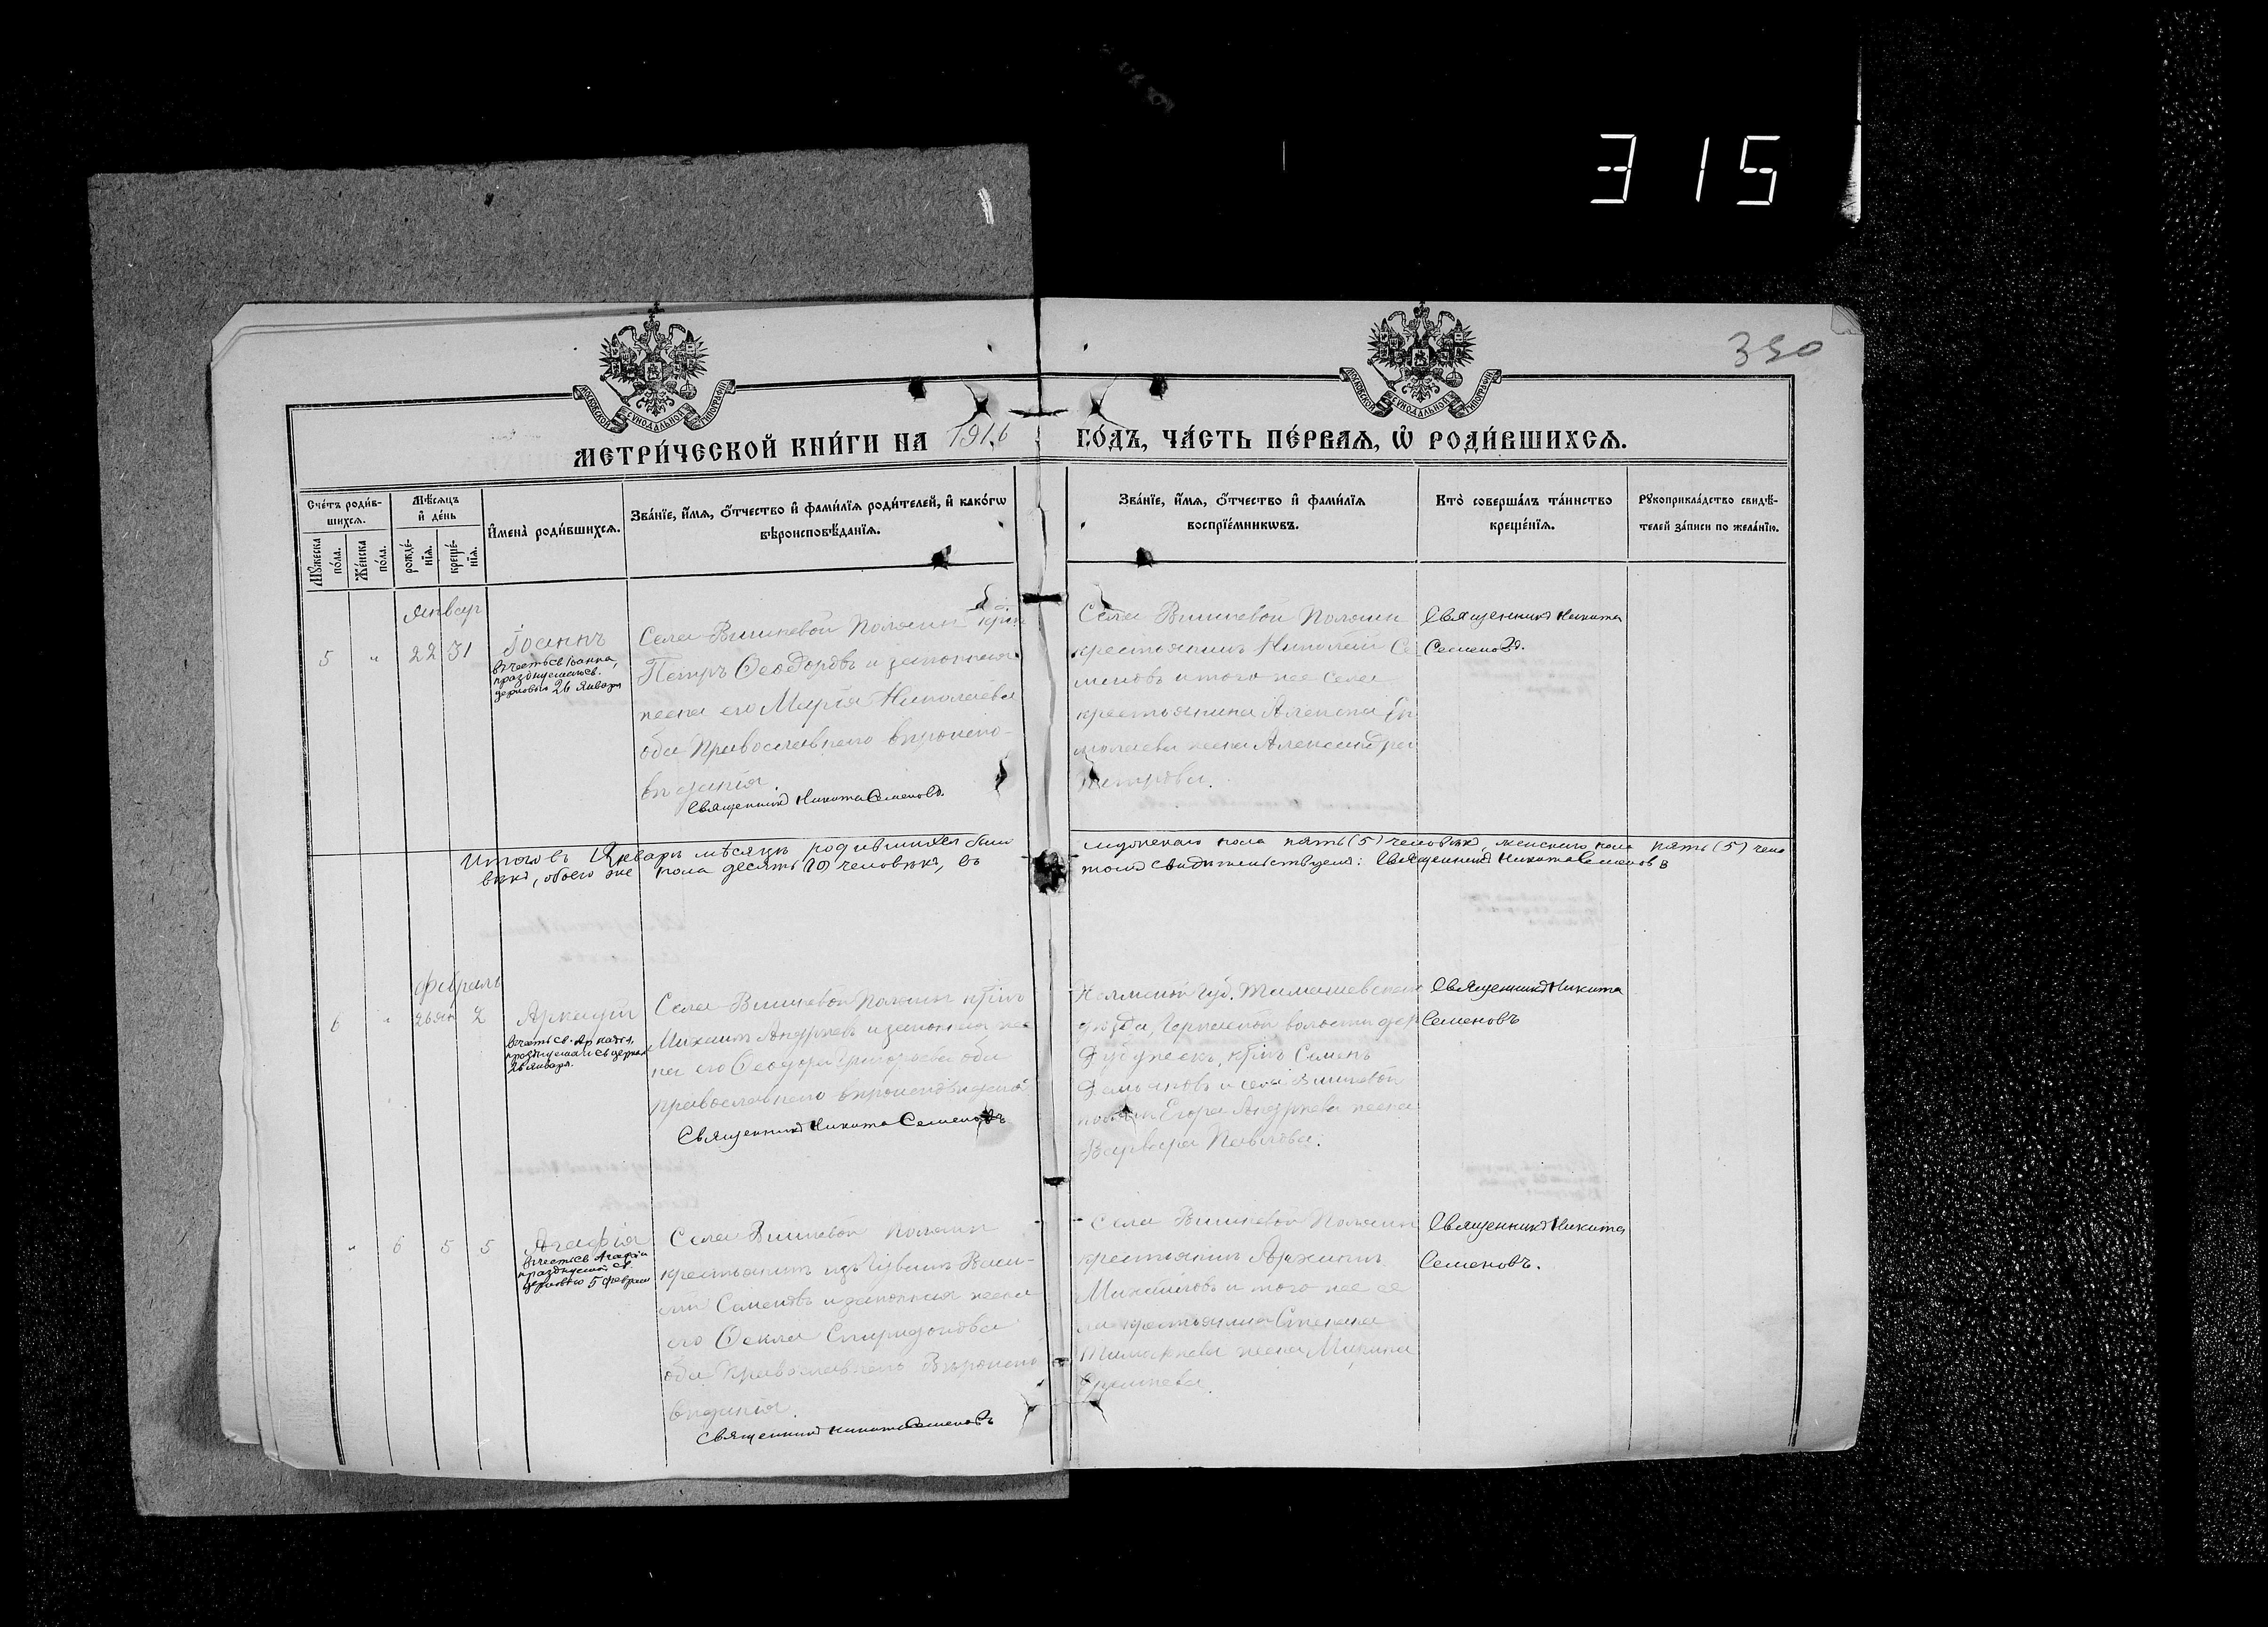 315
350
МОСКОВСКОЙ СУНОДАЛЬНОЙ ТИПОГРАФІИ
МОСКОВСКОЙ СУНОДАЛЬНОЙ ТИПОГРАФІИ
МЕТРИ́ЧЕСКОЙ КНИ́ГИ НА 1916 ГО́ДЪ, ЧА́СТЬ ПЕ́РВАЯ, Ѡ҆ РОДИ́ВШИХСЯ.
Сче́тъ роди́в-
шихся.
Му́жеска
по́ла.
Же́нска
по́ла.
Мѣ́сяцъ
и҆ де́нь
рожде́-
нїя.
креще́-
нїя.
И҆мена̀ роди́вшихся.
Зва́нїе, и҆́мя, ѻ҆́тчество и҆ фами́лїя роди́телей, и҆ како́гѡ
вѣроисповѣ́данїя.
Зва́нїе, и҆́мя, ѻ҆́тчество и҆ фами́лїя
воспрїе́мникѡвъ.
Кто̀ соверша́лъ та́инство
креще́нїя.
Рꙋкоприкла́дство свидѣ́-
телей за́писи по жела́нїю.
Январ
5 " 22 31
Іоаннъ
въ честь св. Іоанна,
празднуемаго св.
церковью 26 Января
Села Вишневой Поляны
Петръ Ѳеодоровъ и законная
жена его Марія Николаева
оба Православнаго вѣроиспо-
вѣданія.
Священникъ Никита Семеновъ.
Села Вишневой Поляны
крестьянинъ Николай Се
меновъ и того же села
крестьянина Алексѣя Ер
молаева жена Александра
Петрова.
Священникъ Никита
Семеновъ.
Итого въ Январѣ мѣсяцѣ родившихся было мужескаго пола пять (5) человѣкъ, женскаго пола пять (5) чело
вѣкъ, обоего же пола десять (10) человѣкъ, въ томъ свидѣтельствуемъ: Священникъ Никита Семеновъ
Февраль
6 " 26 ян 2
Аркадій
въ честь св. Аркадія,
празднуемаго св. церков
26 Января.
Села Вишневой Поляны кр̃інъ
Михаилъ Андреевъ и законная же
на его Ѳеодора Григорьева оба
православнаго вѣроисповѣданія
Священникъ Никита Семеновъ.
губ.
уѣзда, волости дер
кр̃інъ Семенъ
Демьяновъ и села Вишневой
поляны Егора Андреева жена
Варвара Павлова.
Священникъ Никита
Семеновъ
" 6 5 5
Агафія
въ честь св. Агафіи
празднуемой св.
церковью 5 февраля
Села Вишневой Поляны
крестьянинъ изъ Чувашъ Васи-
лій Семеновъ и законная жена
его Ѳекла Спиридонова
оба Православнаго Вѣроиспо
вѣданія.
Священникъ Никита Семеновъ
Села Вишневой Поляны
крестьянинъ Архипъ
и того же се
ла крестьянина Степана
жена Марина
Священникъ Никита
Семеновъ.